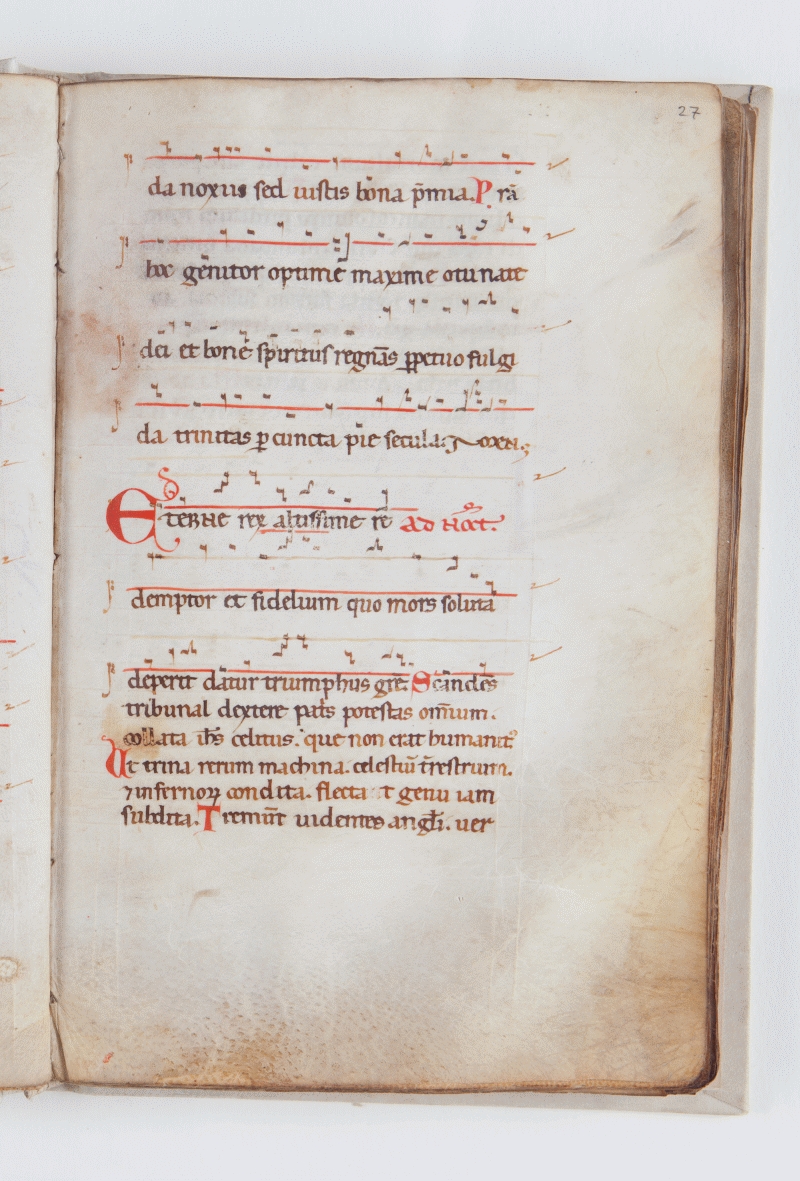 27
da noxius sed iustis bona p̄mia. P rā
hoc genitor optime maxime o tu nate
dei et bone spiritus regnās ꝑpetuo fulgi
da trinitas ꝑ cuncta pie secula.
Eterne rex altissime re Ad noct.
demptor et fidelium quo mors soluta
deperit datur triumphus grē. Scandēs
tribunal dextere pat̄s potestas omīum.
collata ih̄s celitus. que non erat humanit᷒
Ut trina rerum machina. celestiū t̄restrium.
⁊ infernoꝝ condita. flecta t genu iam
subdita. Tremūt uidentes angl̄i. uer